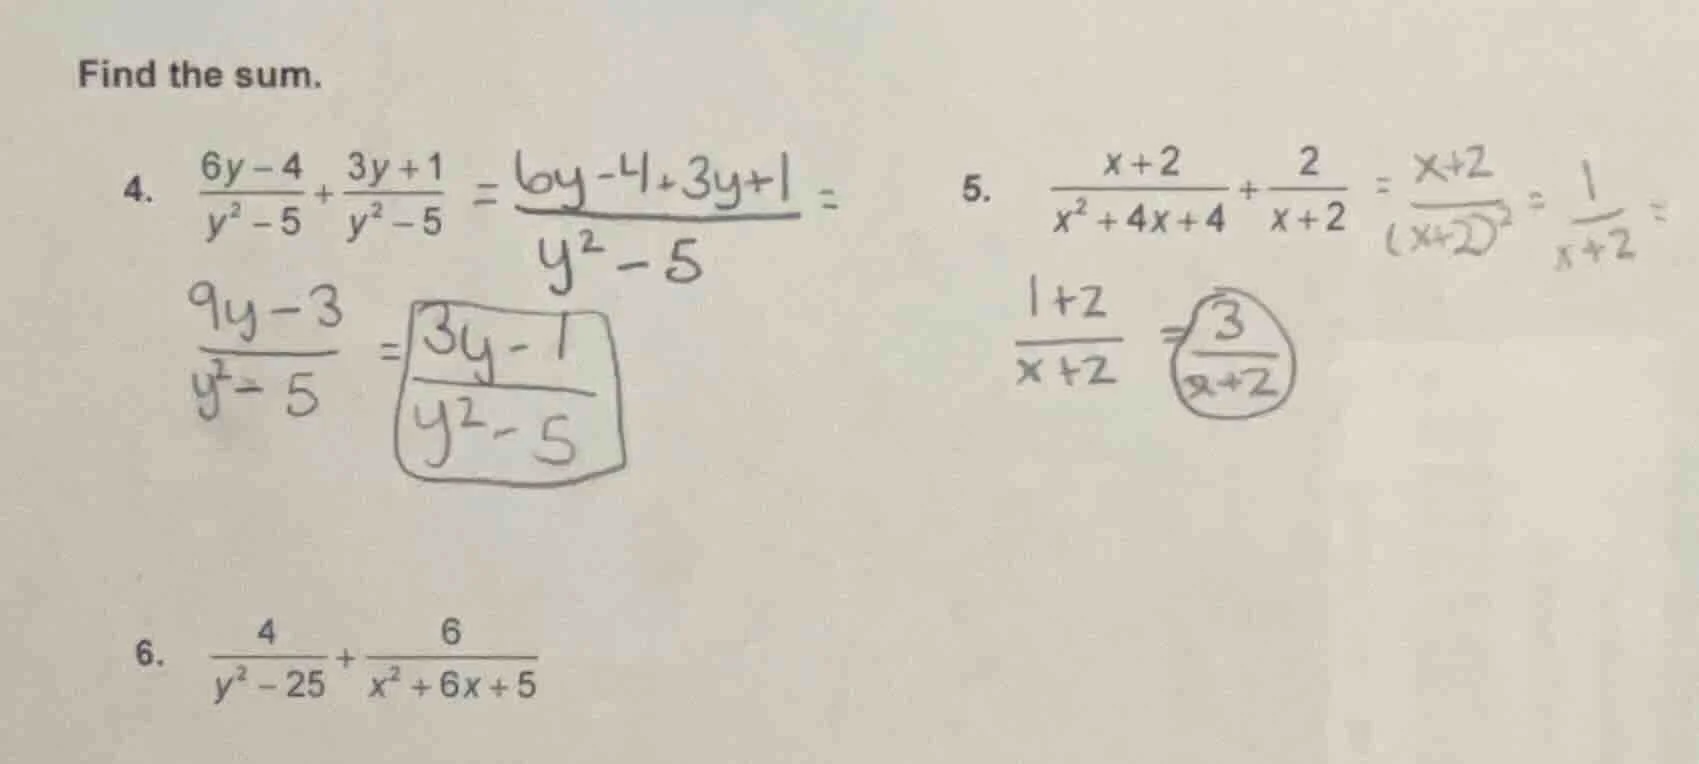 Find the sum.
4. (6y − 4)/(y² − 5) + (3y + 1)/(y² − 5) = (6y − 4 + 3y + 1)/(y² − 5) =
(9y − 3)/(y² − 5) = (3y − 1)/(y² − 5)
5. (x + 2)/(x² + 4x + 4) + 2/(x + 2) = (x+2)/(x+2)² = 1/(x+2) =
(1+2)/(x+2) = 3/(x+2)
6. 4/(y² − 25) + 6/(x² + 6x + 5)